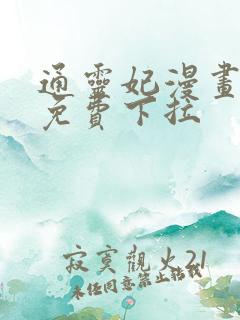 通靈妃漫畫
免費下拉
寂寞觀火21
未經同意禁止轉載